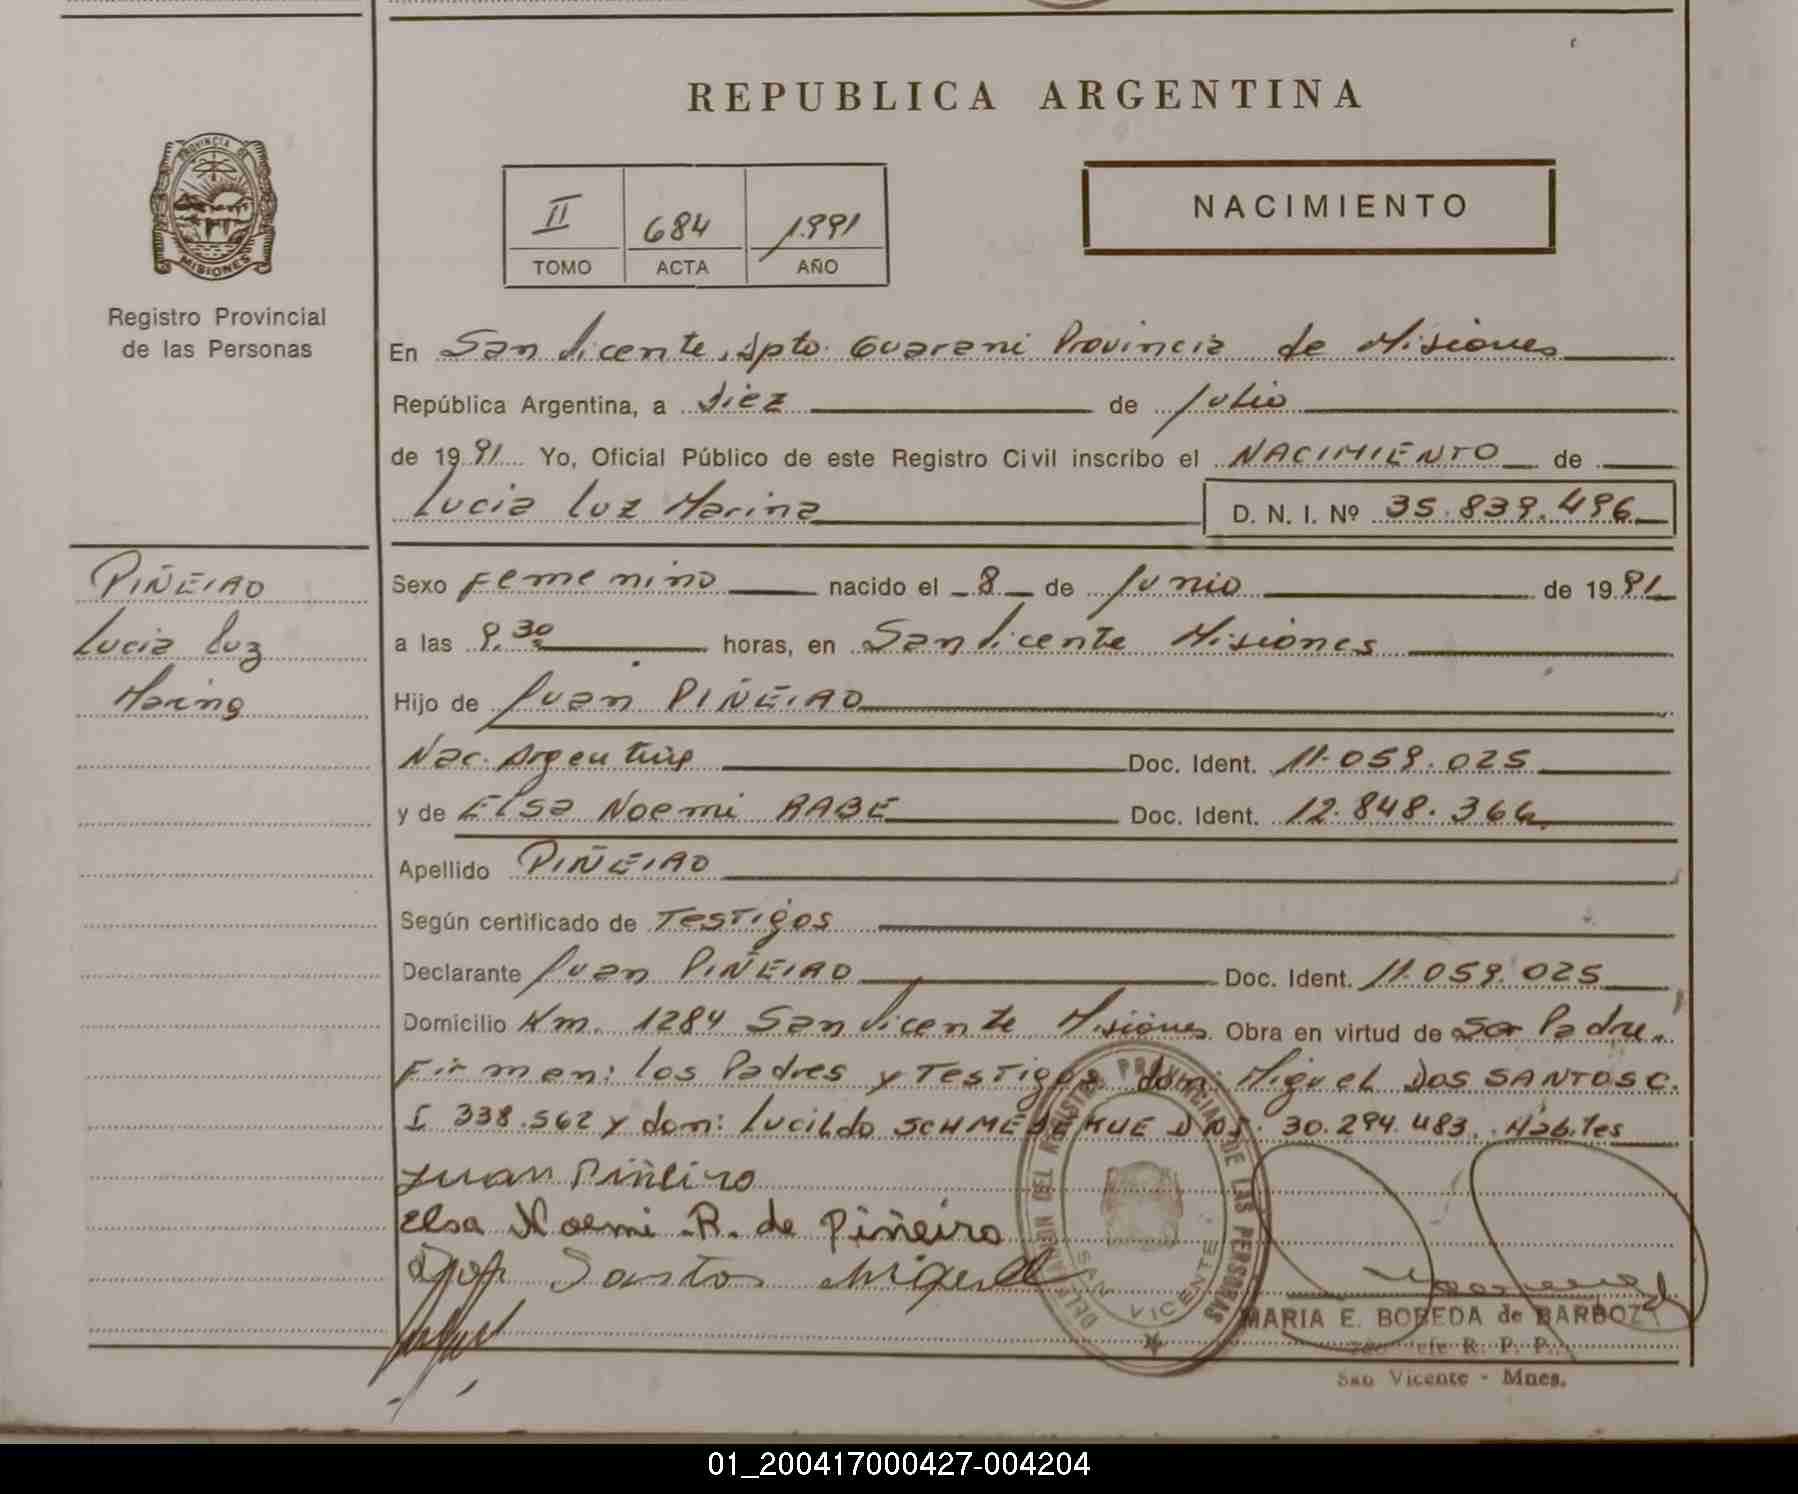 REPUBLICA ARGENTINA
PROVINCIA DE
MISIONES
Registro Provincial
de las Personas
II 684 1.991
TOMO ACTA AÑO
NACIMIENTO
En San Vicente, Dpto. Guarani Provincia de Misiones
República Argentina, a diez de Julio
de 19 91 Yo, Oficial Público de este Registro Civil inscribo el NACIMIENTO de
Lucia Luz Marina D. N. I. Nº 35.839.496
PIÑEIRO
Lucia Luz
Marina
Sexo Femenino nacido el 8 de Junio de 19 91
a las 9.30 horas, en San Vicente Misiones
Hijo de Juan PIÑEIRO
Nac. Argentina Doc. Ident. 11.059.025
y de Elsa Noemi RABE Doc. Ident. 12.848.366
Apellido PIÑEIRO
Según certificado de Testigos
Declarante Juan PIÑEIRO Doc. Ident. 11.059.025
Domicilio Km. 1284 San Vicente Misiones. Obra en virtud de Ser Padre.
Firman: los Padres y Testigos don: Miguel DOS SANTOS C.
I 338.562 y don: Lucildo DNI. 30.294.483. Hábiles
Juan Piñeiro
Elsa Noemi R. de Piñeiro
Santos Miguel
DELEGACION DEL REGISTRO PROVINCIAL DE LAS PERSONAS
SAN VICENTE
MARIA E. BOBEDA de BARBOZA
R. P. P.
San Vicente - Mnes.
01_200417000427-004204